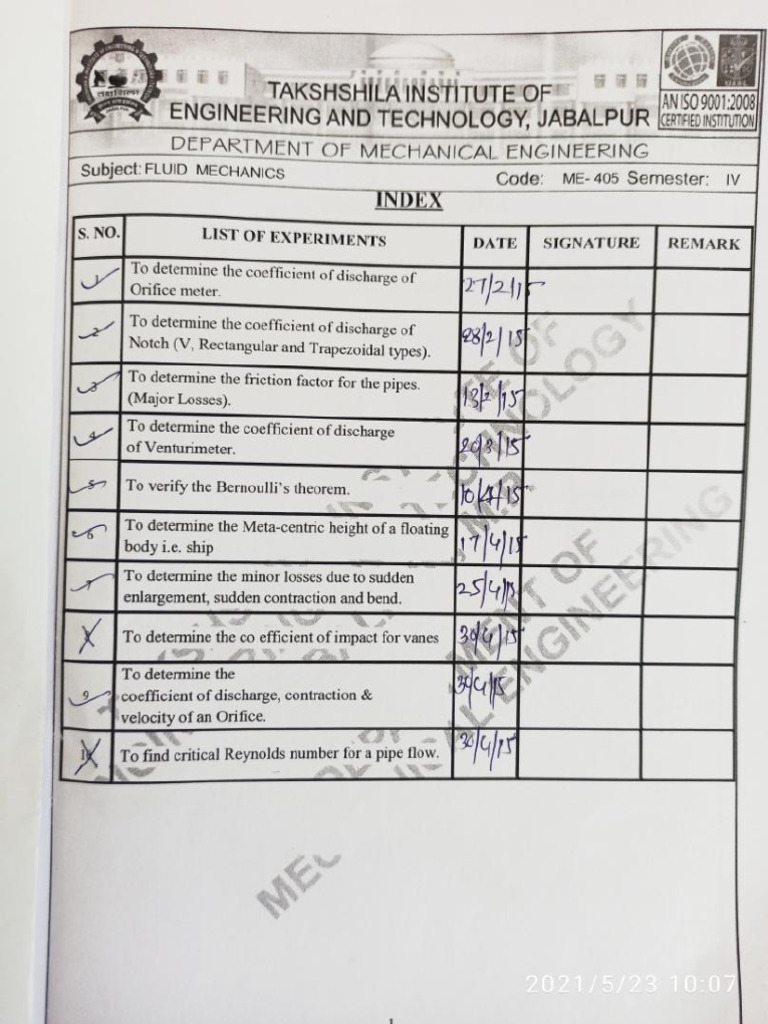 TAKSHSHILA INSTITUTE OF
ENGINEERING AND TECHNOLOGY, JABALPUR
AN ISO 9001:2008
CERTIFIED INSTITUTION
DEPARTMENT OF MECHANICAL ENGINEERING
Subject: FLUID MECHANICS Code: ME- 405 Semester: IV
INDEX
S. NO. LIST OF EXPERIMENTS DATE SIGNATURE REMARK
1 To determine the coefficient of discharge of
Orifice meter. 27/2/15
2 To determine the coefficient of discharge of
Notch (V, Rectangular and Trapezoidal types). 28/2/15
3 To determine the friction factor for the pipes.
(Major Losses). 13/2/15
4 To determine the coefficient of discharge
of Venturimeter. 20/3/15
5 To verify the Bernoulli's theorem. 10/4/15
6 To determine the Meta-centric height of a floating
body i.e. ship 17/4/15
7 To determine the minor losses due to sudden
enlargement, sudden contraction and bend. 25/4/15
To determine the co efficient of impact for vanes 30/4/15
9 To determine the
coefficient of discharge, contraction &
velocity of an Orifice. 30/4/15
To find critical Reynolds number for a pipe flow. 30/4/15
2021/5/23 10:07
1